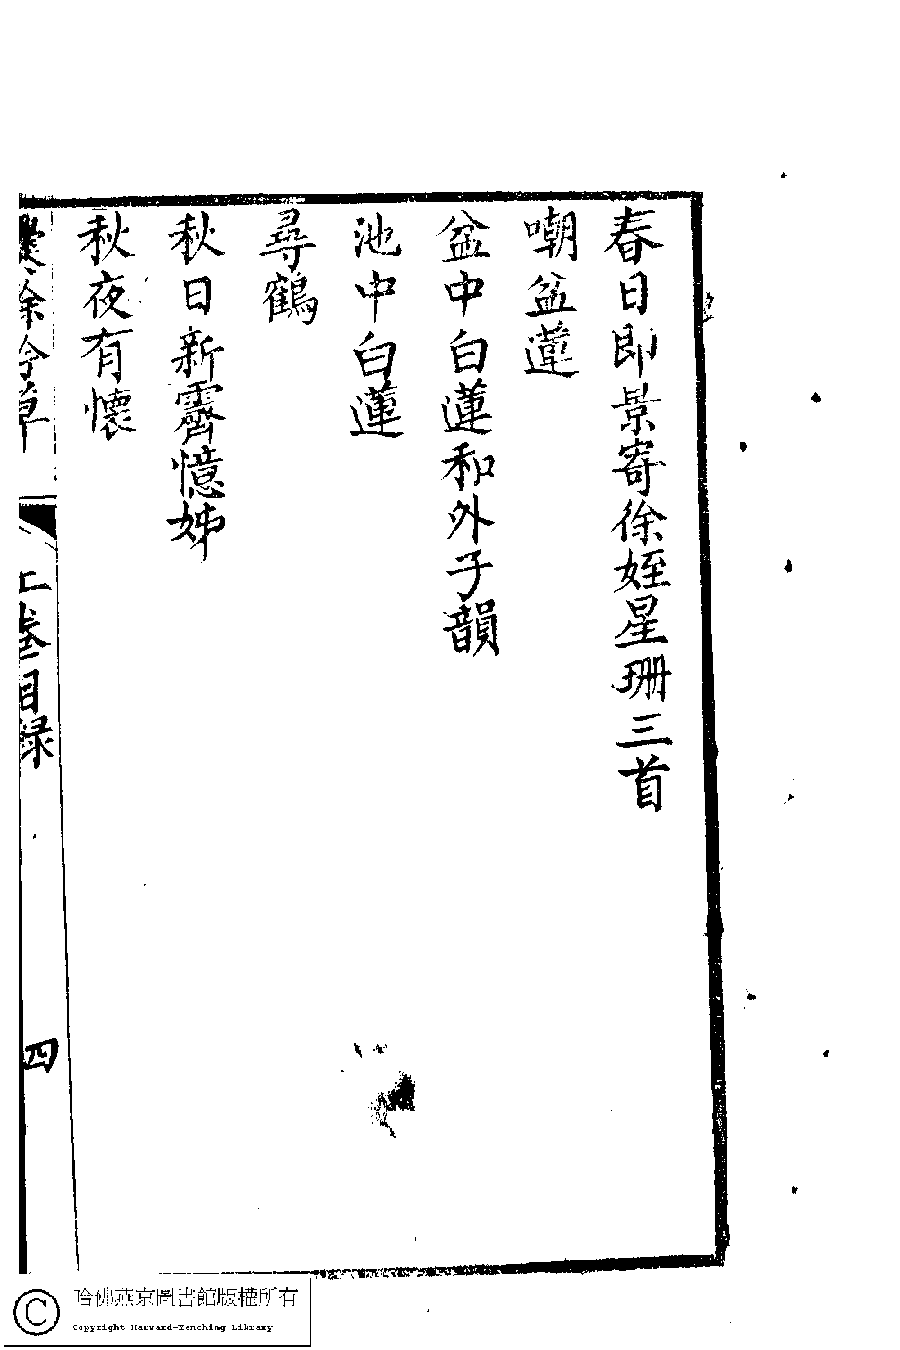 春日即景寄徐姪星珊三首
嘲盆蓮
盆中白蓮和外子韻
池中白蓮
尋鶴
秋日新霽憶姊
秋夜有懷
爨餘吟草
上卷目録
四
哈佛燕京圖書館版權所有
Copyright Harvard-Yenching Library